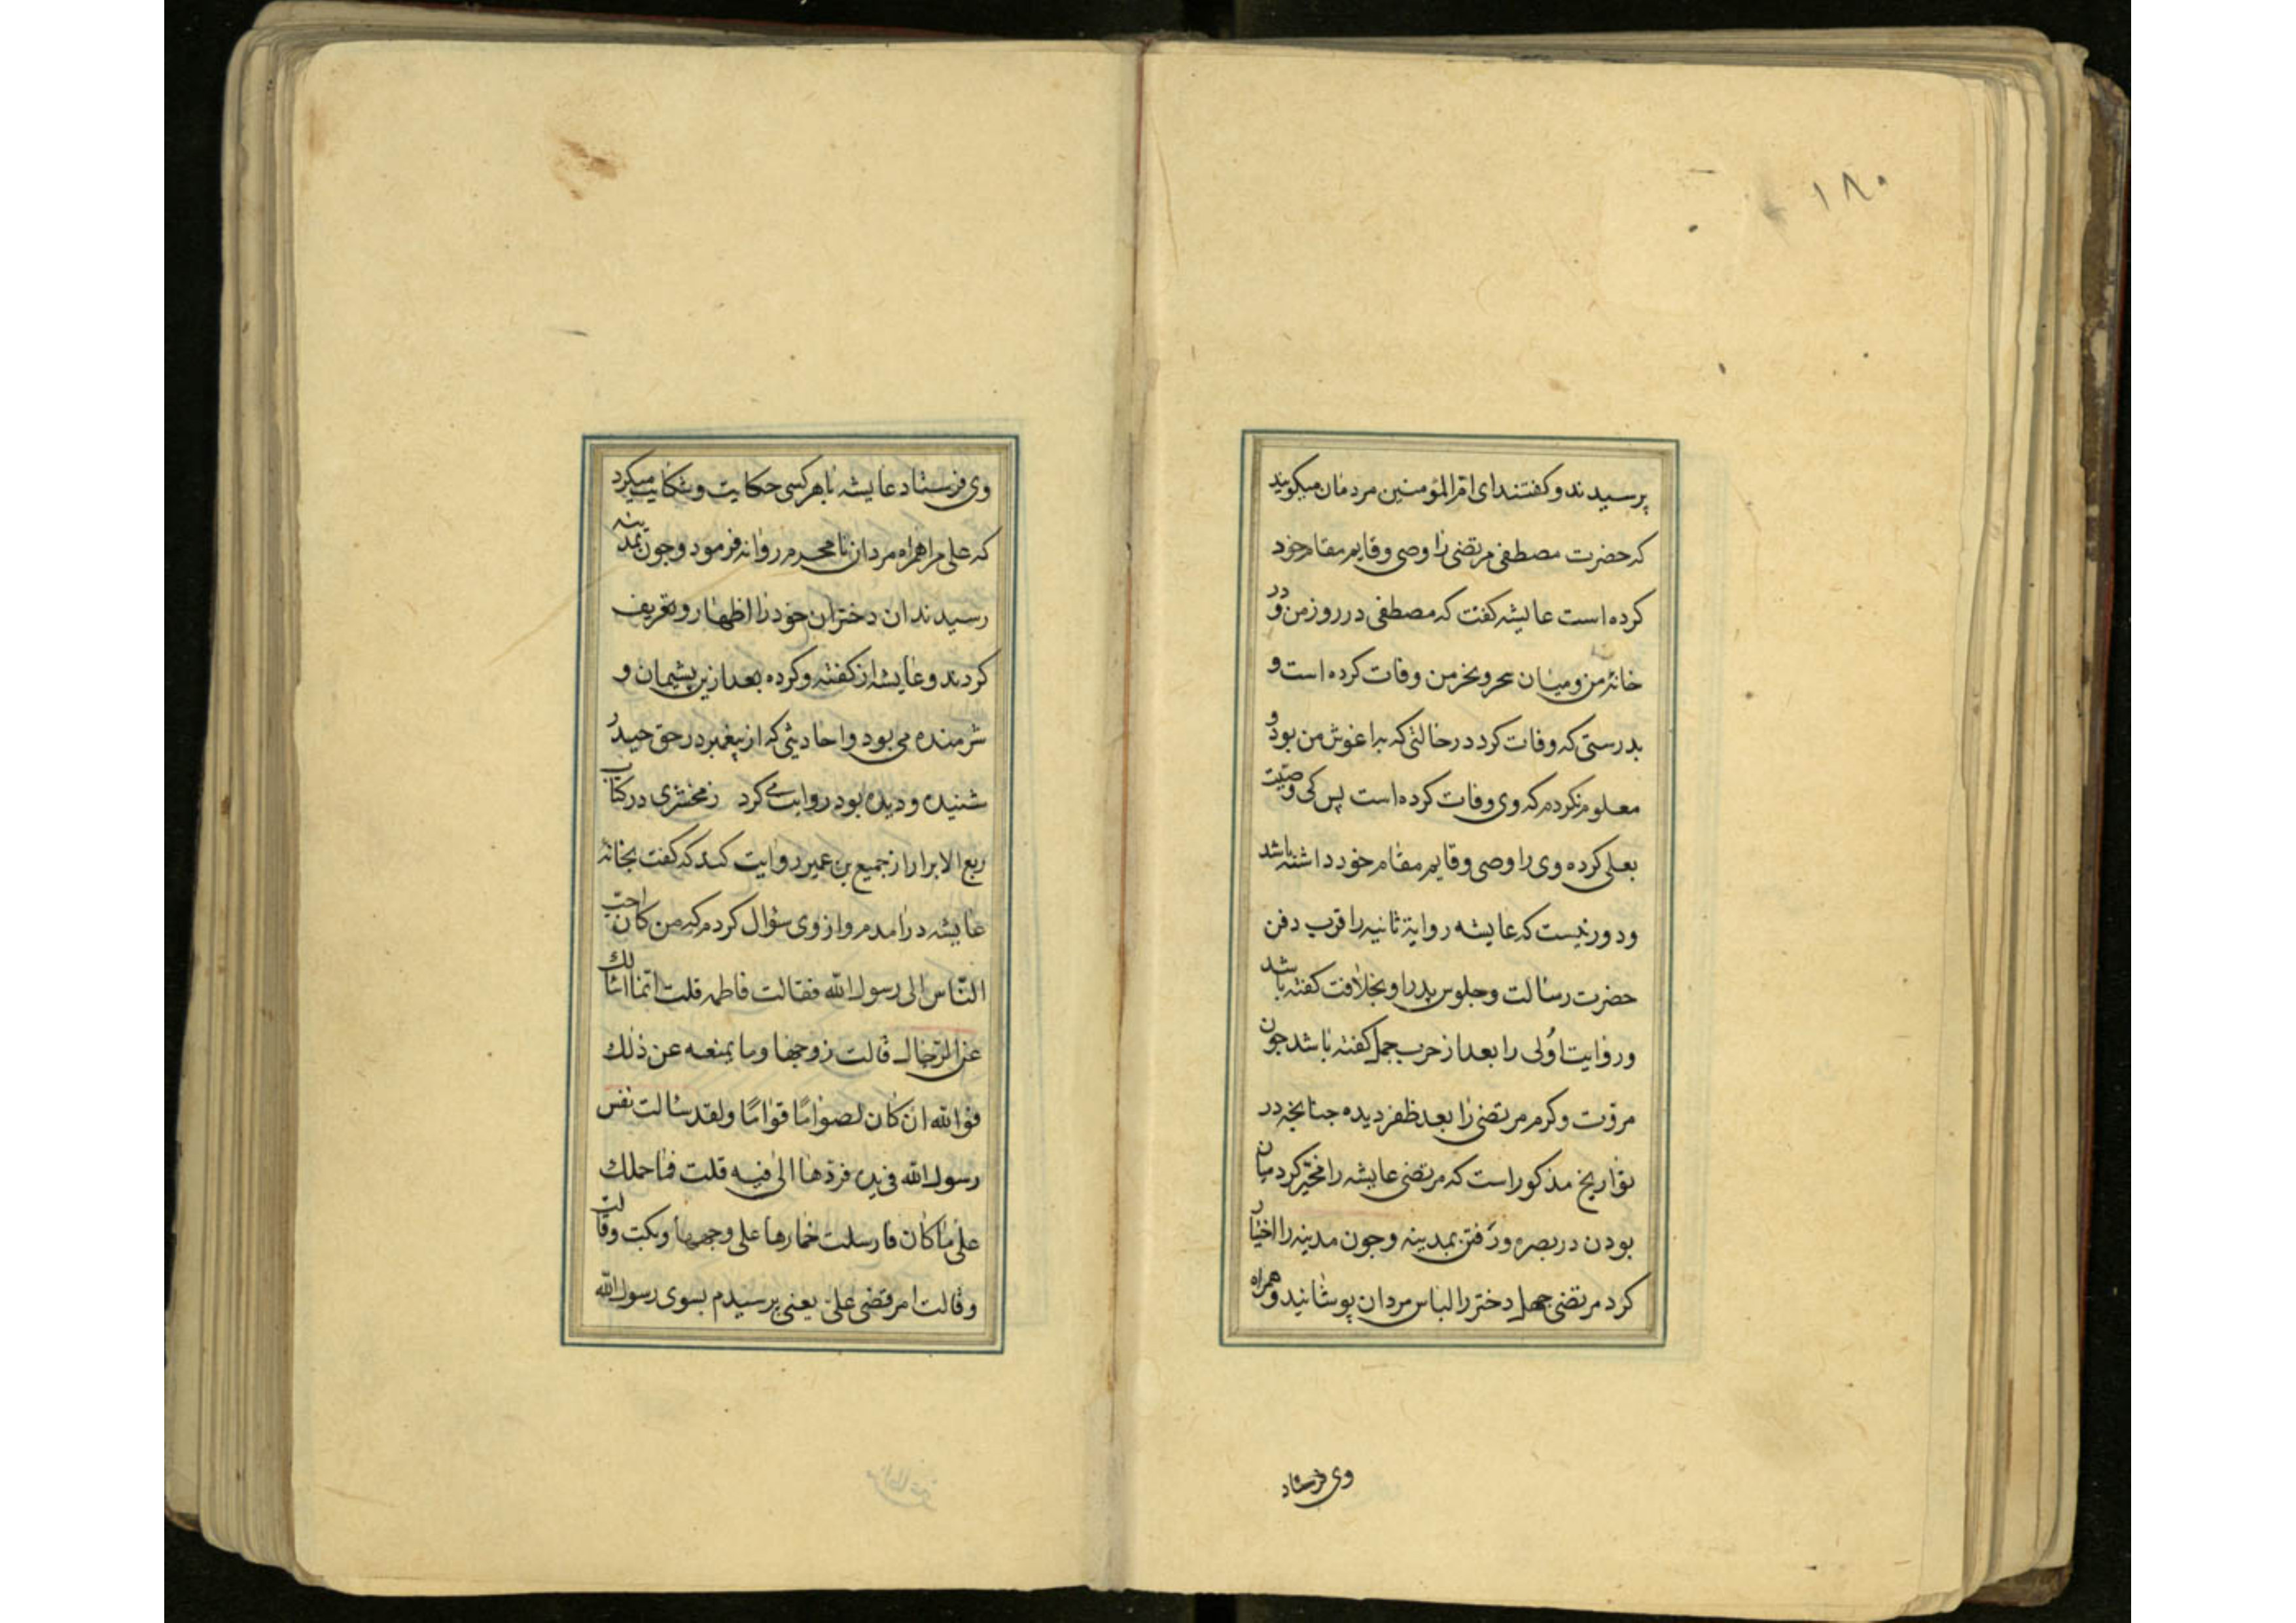 ۱۸۰
پرسیدند و کفتند ای ام المؤمنین مردمان میکویند
که حضرت مصطفی مرتضی را وصی و قایم مقام خود
کرده است عایشه کفت که مصطفی در روز من و در
خانهٔ من و میان سحر و نحر من وفات کرده است و
بدرستی که وفات کرد در حالتی که به اغوش من بود و
معلوم نکردم که وی وفات کرده است پس کی وصیّت
بعلی کرده وی را وصی و قایم مقام خود داشته باشد
و دور نیست که عایشه روایة ثانیه را قرب دفن
حضرت رسالت و جلوس پدر او بخلافت کفته باشد
و روایت اُولی را بعد از حرب جمل کفته باشد جون
مروّت و کرم مرتضی را بعد ظفر دیده جنانجه در
تواریخ مذکور است که مرتضی عایشه را مخیّر کرد میان
بودن در بصره و رَفتن بمدینه و جون مدینه را اختیار
کرد مرتضی جهل دختر را لباس مردان پوشانید و همراه
وی فرستاد
وی فرستاد عایشه با هر کسی حکایت و شکایت میکرد
که علی مرا همراه مردان نا محرم روانه فرمود و جون بمدینه
رسیدند ان دختران خود را اظهار و تعریف
کردند و عایشه از کفته و کرده بعد ازین پشیمان و
شرمنده می بود و احادیثی که از پیغمبر در حق حیدر
شنیده و دیده بود روایت می کرد زمخشری در کتاب
ربیع الابرار از جمیع بن عمیر روایت کند که کفت بخانهٔ
عایشه درامدم و از وی سؤال کردم که من کان احبّ
النّاس الی رسول الله فقالت فاطمه قلت انّما اسألك
عن الرّجال قالت زوجها و ما یمنعه عن ذلك
فوالله ان کان لصوّامًا قوّامًا و لقد سالت نفس
رسول الله فی یده فردّها الی فیه قلت فما حملك
علی ما کان فارسلت خمارها علی وجهها و بکت و قالت
و قالت امر قضی علیّ یعنی پرسیدم بسوی رسول الله